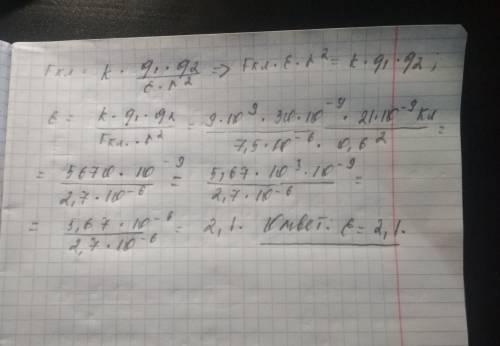 Fкл. = k · q₁·q₂ / ε·r² => Fкл·ε·r² = k·q₁·q₂;
ε = k·q₁·q₂ / Fкл.·r² = 9·10⁹·30·10⁻⁹·21·10⁻⁹Кл / 7,5·10⁻⁶·0,6² =
= 5670·10⁻⁹ / 2,7·10⁻⁶ = 5,67·10³·10⁻⁹ / 2,7·10⁻⁶ =
= 5,67·10⁻⁶ / 2,7·10⁻⁶ = 2,1. Ответ: ε = 2,1.